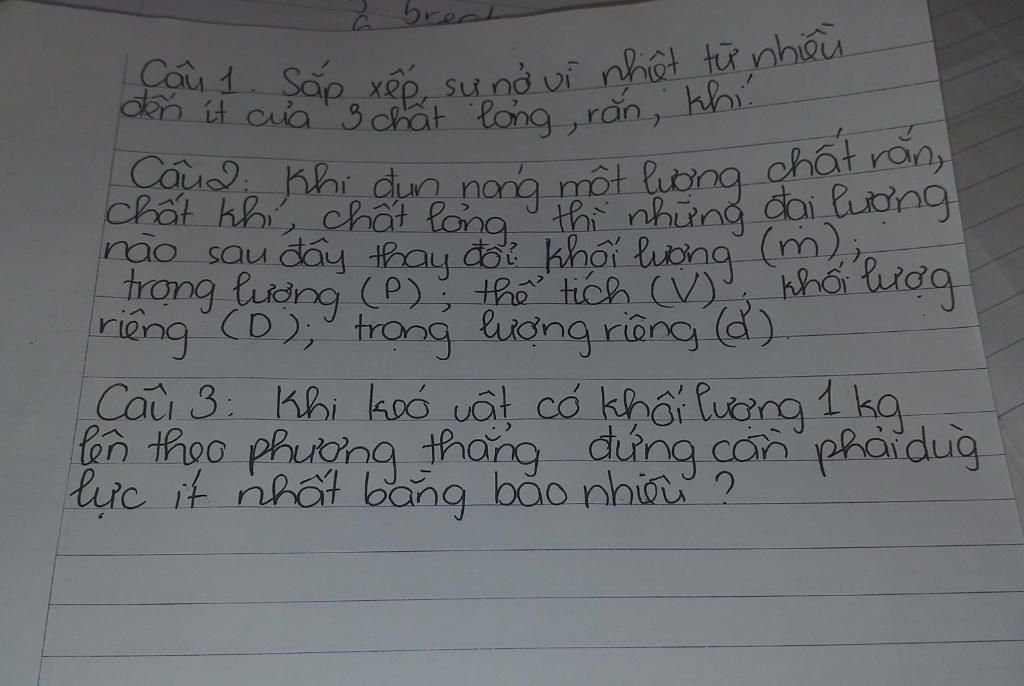 Câu 1. Sắp xếp sự nở vì nhiệt từ nhiều
đến ít của 3 chất lỏng, rắn, khí.
Câu 2: Khi đun nóng một lượng chất rắn,
chất khí, chất lỏng thì những đại lượng
nào sau đây thay đổi: Khối lượng (m);
trọng lượng (P); thể tích (V); khối lượg
riêng (D); trọng lượng riêng (d).
Câu 3: Khi koó vật có khối lượng 1 kg
lên theo phương thẳng đứng cần phải dùg
lực ít nhất bằng bao nhiêu?